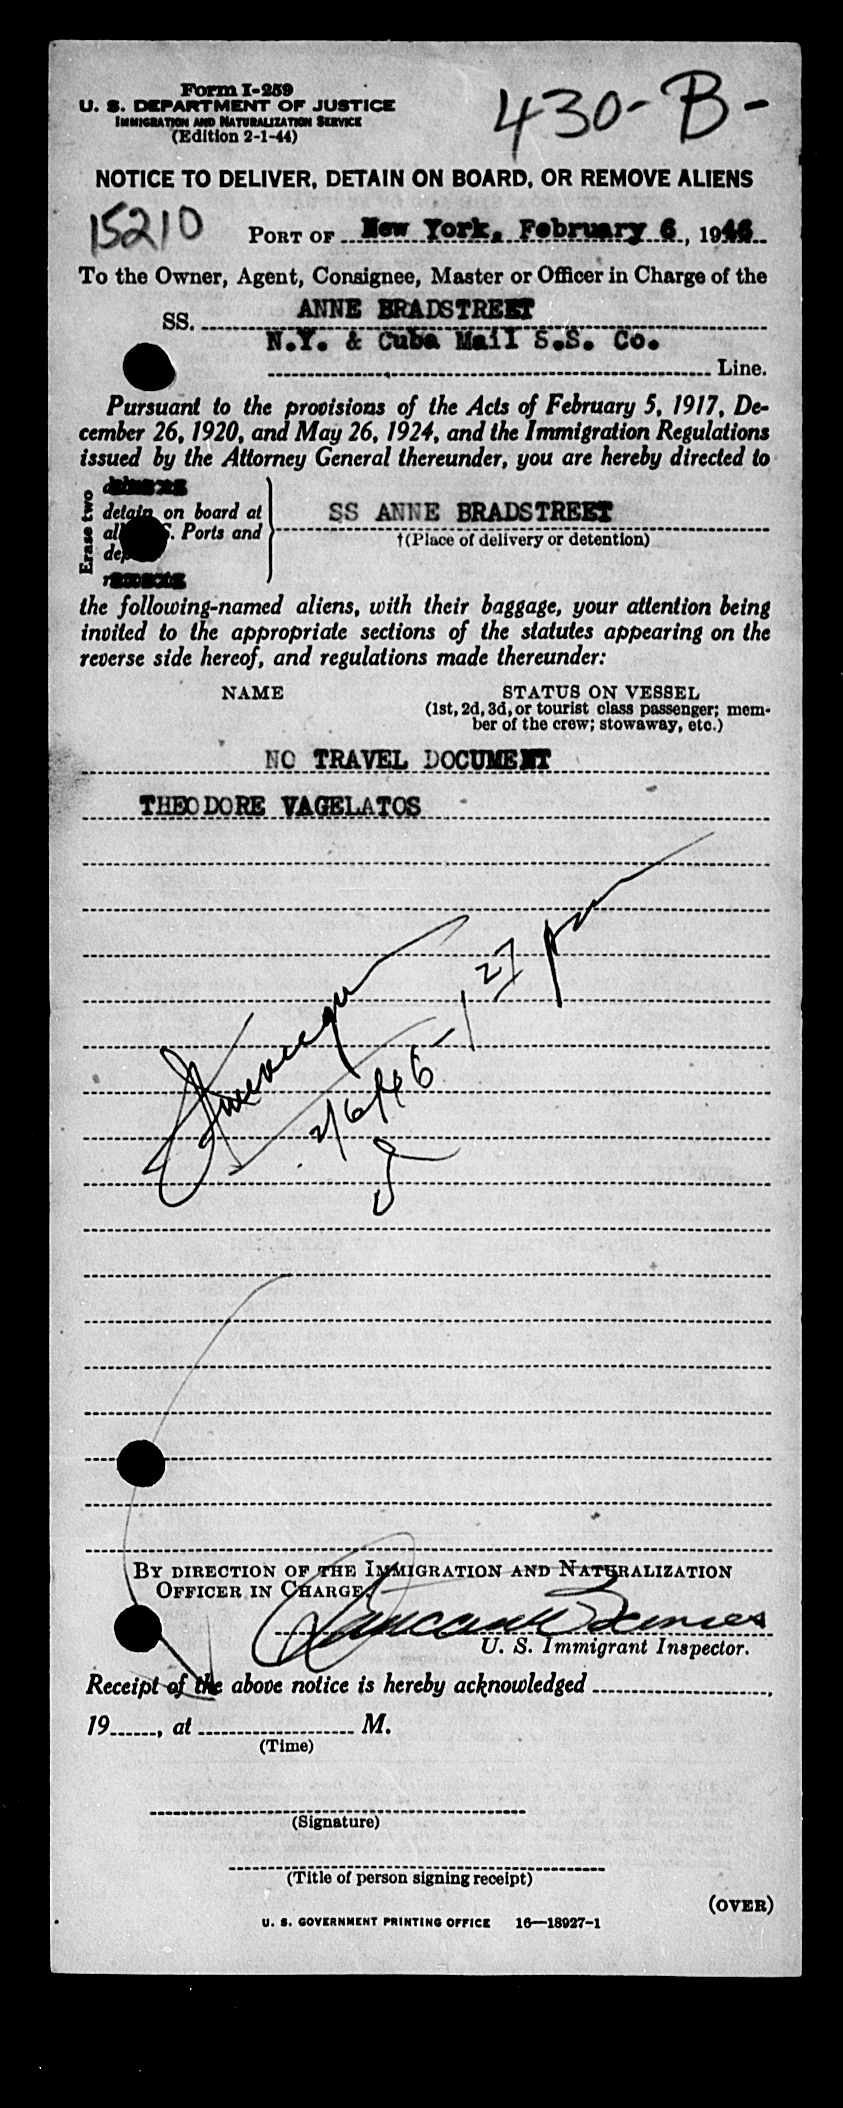 Form I-259
U. S. DEPARTMENT OF JUSTICE
IMMIGRATION AND NATURALIZATION SERVICE
(Edition 2-1-44)
430-B-
NOTICE TO DELIVER, DETAIN ON BOARD, OR REMOVE ALIENS
15210
PORT OF New York, February 6, 1946
To the Owner, Agent, Consignee, Master or Officer in Charge of the
SS. ANNE BRADSTREET
N.Y. & Cuba Mail S.S. Co.
Line.
Pursuant to the provisions of the Acts of February 5, 1917, De-
cember 26, 1920, and May 26, 1924, and the Immigration Regulations
issued by the Attorney General thereunder, you are hereby directed to
Erase two
detain on board at
S. Ports and
SS ANNE BRADSTREET
†(Place of delivery or detention)
the following-named aliens, with their baggage, your attention being
invited to the appropriate sections of the statutes appearing on the
reverse side hereof, and regulations made thereunder:
NAME
STATUS ON VESSEL
(1st, 2d, 3d, or tourist class passenger; mem-
ber of the crew; stowaway, etc.)
NO TRAVEL DOCUMENT
THEODORE VAGELATOS
2/6/46 - 1 27 pm
BY DIRECTION OF THE IMMIGRATION AND NATURALIZATION
OFFICER IN CHARGE.
U. S. Immigrant Inspector.
Receipt of the above notice is hereby acknowledged ,
19 , at M.
(Time)
(Signature)
(Title of person signing receipt)
(OVER)
U. S. GOVERNMENT PRINTING OFFICE 16—18927-1